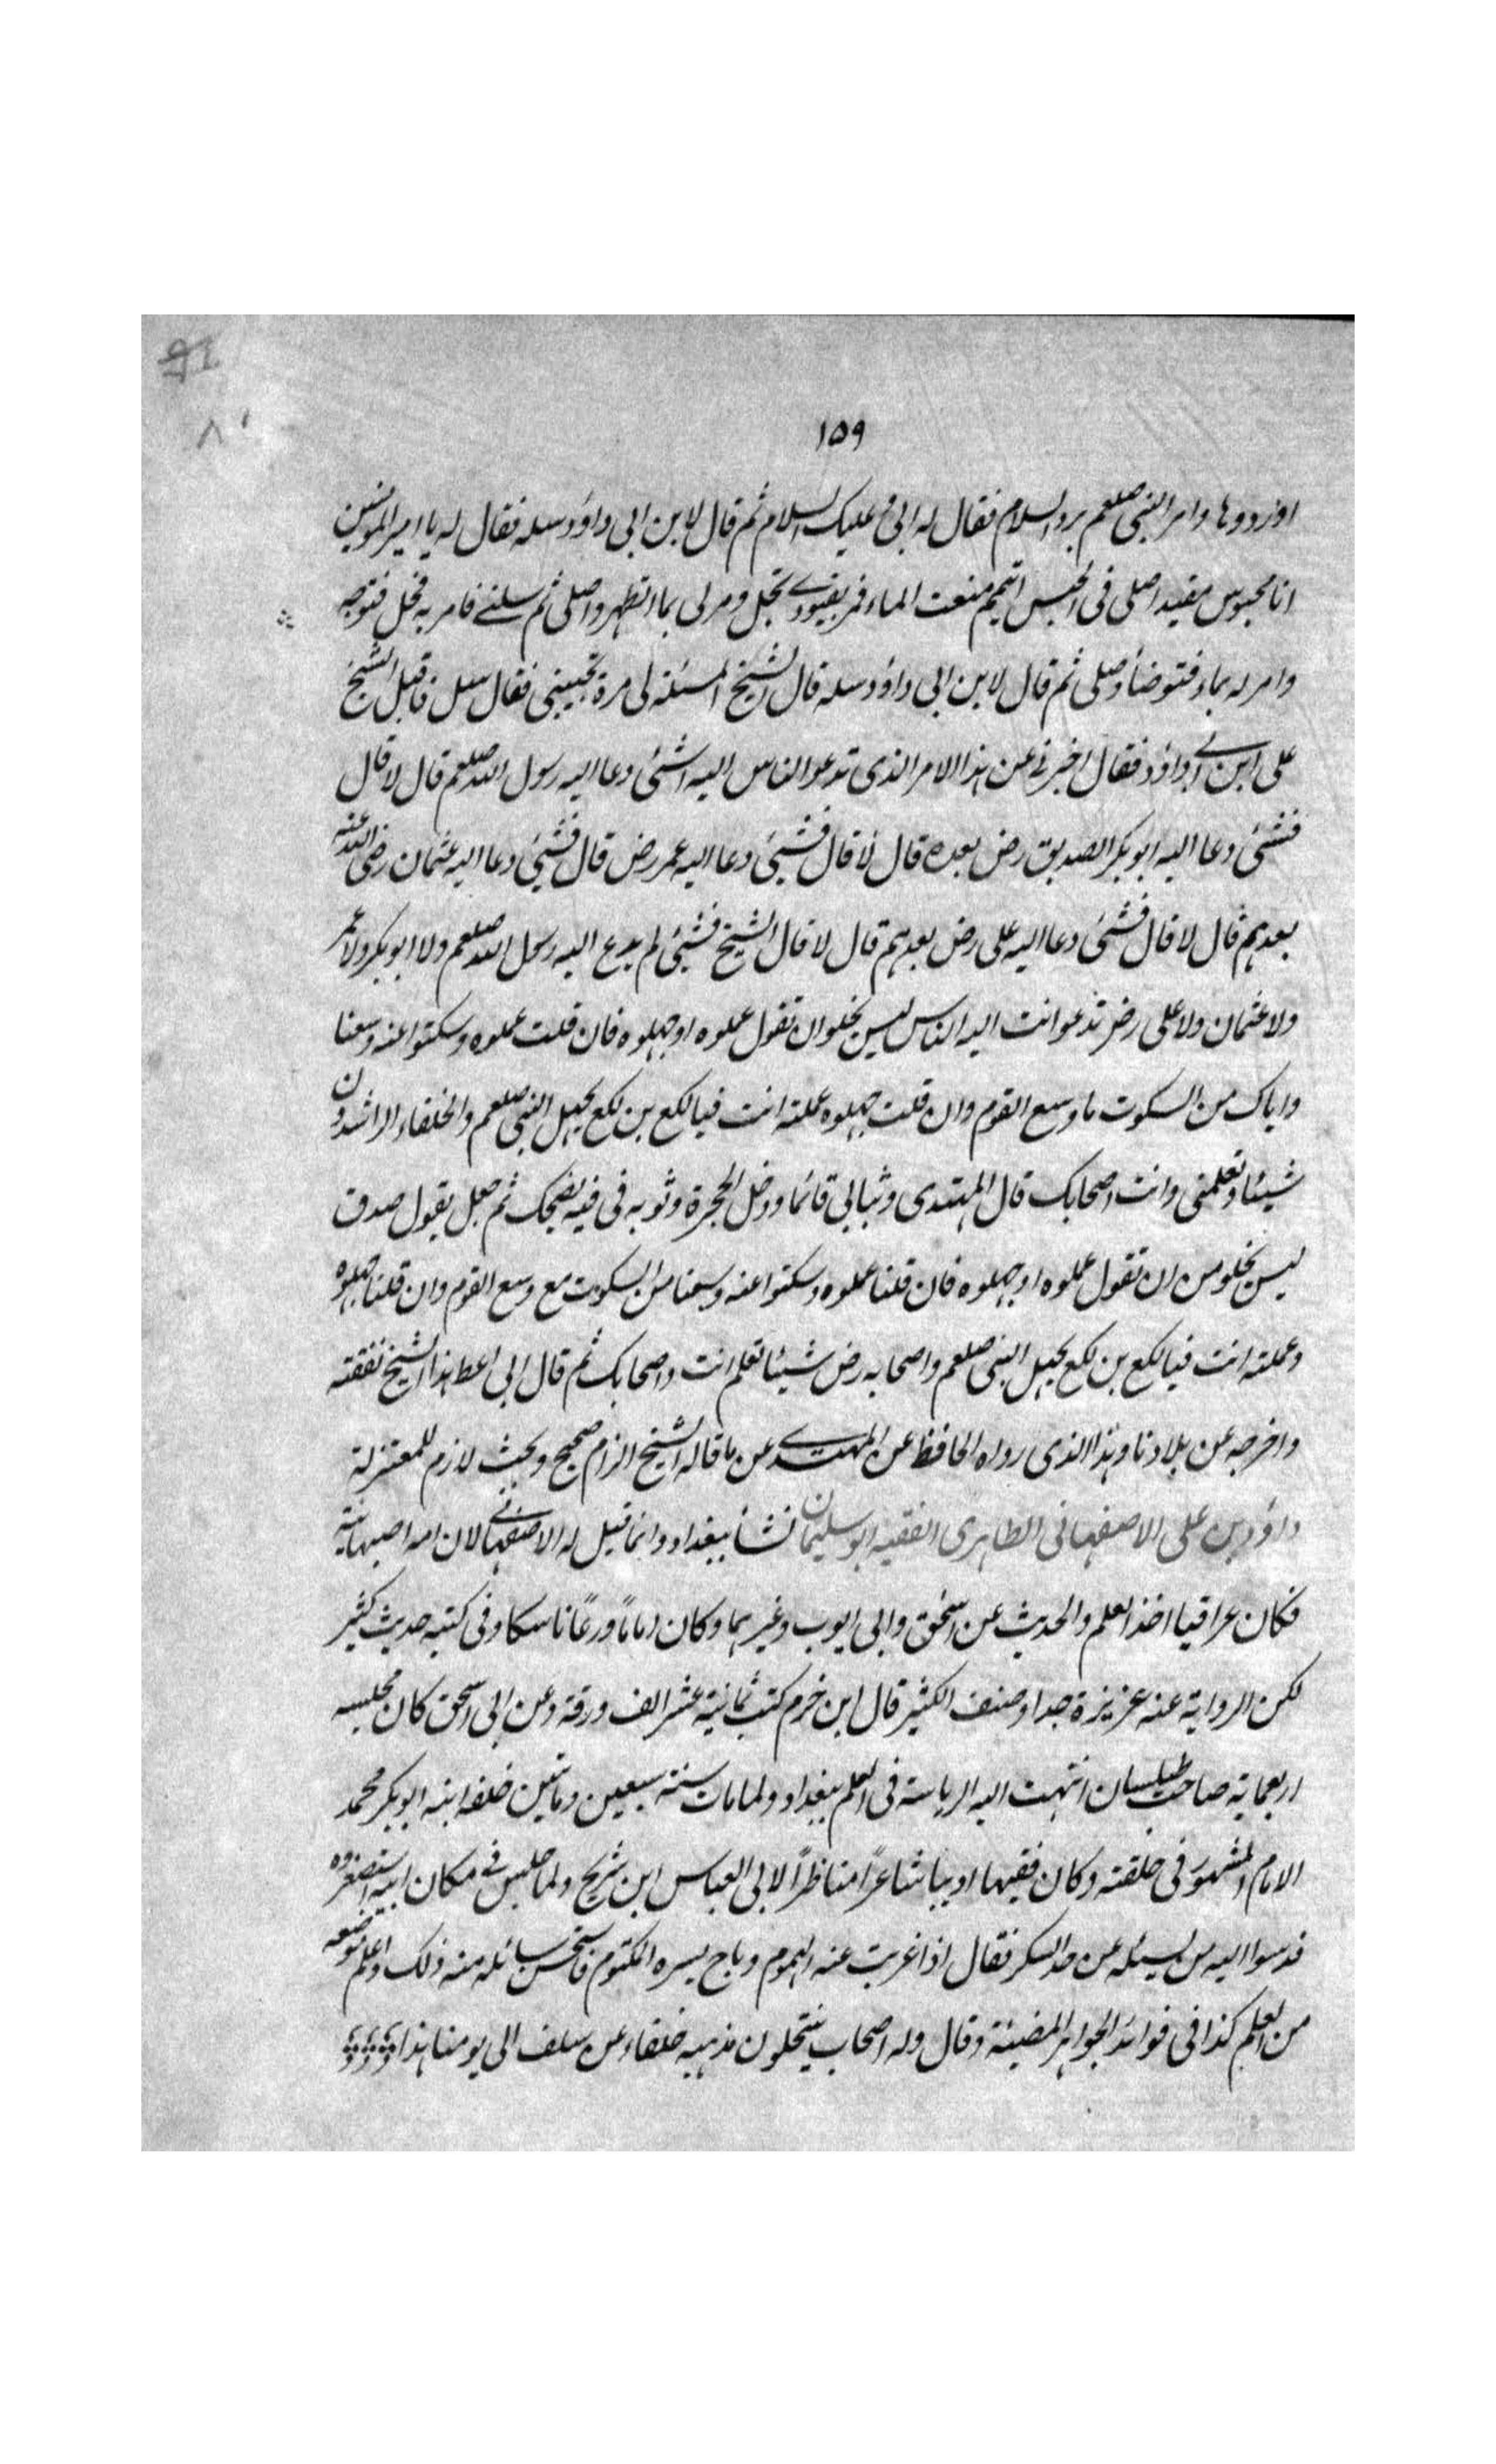 ١٥٩
او ردوها وامر النبى صلعم برد السلام فقال له ابى وعليك السلام ثم قال لابن ابى داؤد سله فقال له يا امير المؤمنين
انا محبوس مقيد اصلى فى الحبس اتيمم منعت الماء فمر بقيودى تحل ومر لى بماء اتطهر واصلى ثم سلنى فامر به فحل فتوجه
وامر له بماء فتوضأ وصلى ثم قال لابن ابى داؤد سله قال الشيخ المسئلة لى مره تجيبنى فقال سل فاقبل الشيخ
على ابن ابى داؤد فقال اخبرنى عن هذا الامر الذى تدعو الناس اليه اشئ دعا اليه رسول الله صلعم قال لا قال
فشئ دعا اليه ابو بكر الصديق رض بعده قال لا قال فشئ دعا اليه عمر رض قال فشئ دعا اليه عثمان رضى الله عنه
بعدهم قال لا قال فشئ دعا اليه على رض بعدهم قال لا قال الشيخ فشئ لم يدع اليه رسول الله صلعم ولا ابو بكر ولا عمر
ولا عثمان ولا على رض تدعو انت اليه الناس ليس يخلو ان تقول علموه او جهلوه فان قلت علموه وسكتوا عنه وسعنا
واياك من السكوت ما وسع القوم وان قلت جهلوه علمته انت فيا لكع بن لكع يجهل النبى صلعم والخلفاء الراشدون
شيئا وتعلمنى وانت اصحابك قال المهتدى وثبا ابى قائما ودخل الحجرة وثوبه فى فيه يضحك ثم جعل يقول صدق
ليس يخلو من ان تقول علموه او جهلوه فان قلنا علموه وسكتوا عنه وسعنا من السكوت مع وسع القوم وان قلنا جهلوه
وعملته انت فيا لكع بن لكع يجهل النبى صلعم واصحابه رض شيئا تعلم انت واصحابك ثم قال ابى اعط هذا الشيخ نفقته
واخرجه عن بلادنا وهذا الذى رواه الحافظ عن المهتدى عن ما قاله الشيخ الزام صحيح وبحث لازم للمعتزلة
داؤد بن على الاصفهانى الظاهرى الفقيه ابو سليمان نشأ ببغداد وانما قيل له الاصفهانى لان امه اصبهانية
فكان عراقيا اخذ العلم والحديث عن اسحق وابى ايوب وغيرهما وكان اماماً ورعاً ناسكا وفى كتبه حديث كثير
لكن الرواية عنه عزيزة جدا وصنف الكثير قال ابن خرم كتب ثمانية عشر الف ورقة وعن ابى اسحق كان مجلسه
اربعماية صاحب طيلسان انتهت اليه الرياسة فى العلم ببغداد ولما مات سنة سبعين ومائتين خلفه ابنه ابو بكر محمد
الامام المشهور فى خلقته وكان فقيها اديبا شاعراً مناظراً لابى العباس ابن شريح ولما جلس فى مكان ابيه استصغروه
فدسوا اليه من يسئله عن حد السكر فقال اذا غربت عنه الهموم وباح بسره المكتوم فاستحسن سائله منه ذلك واعلم موضعه
من العلم كذا فى فوائد الجواهر المضيئة وقال وله اصحاب ينتحلون مذهبه خلفاء عن سلف الى يومنا هذا